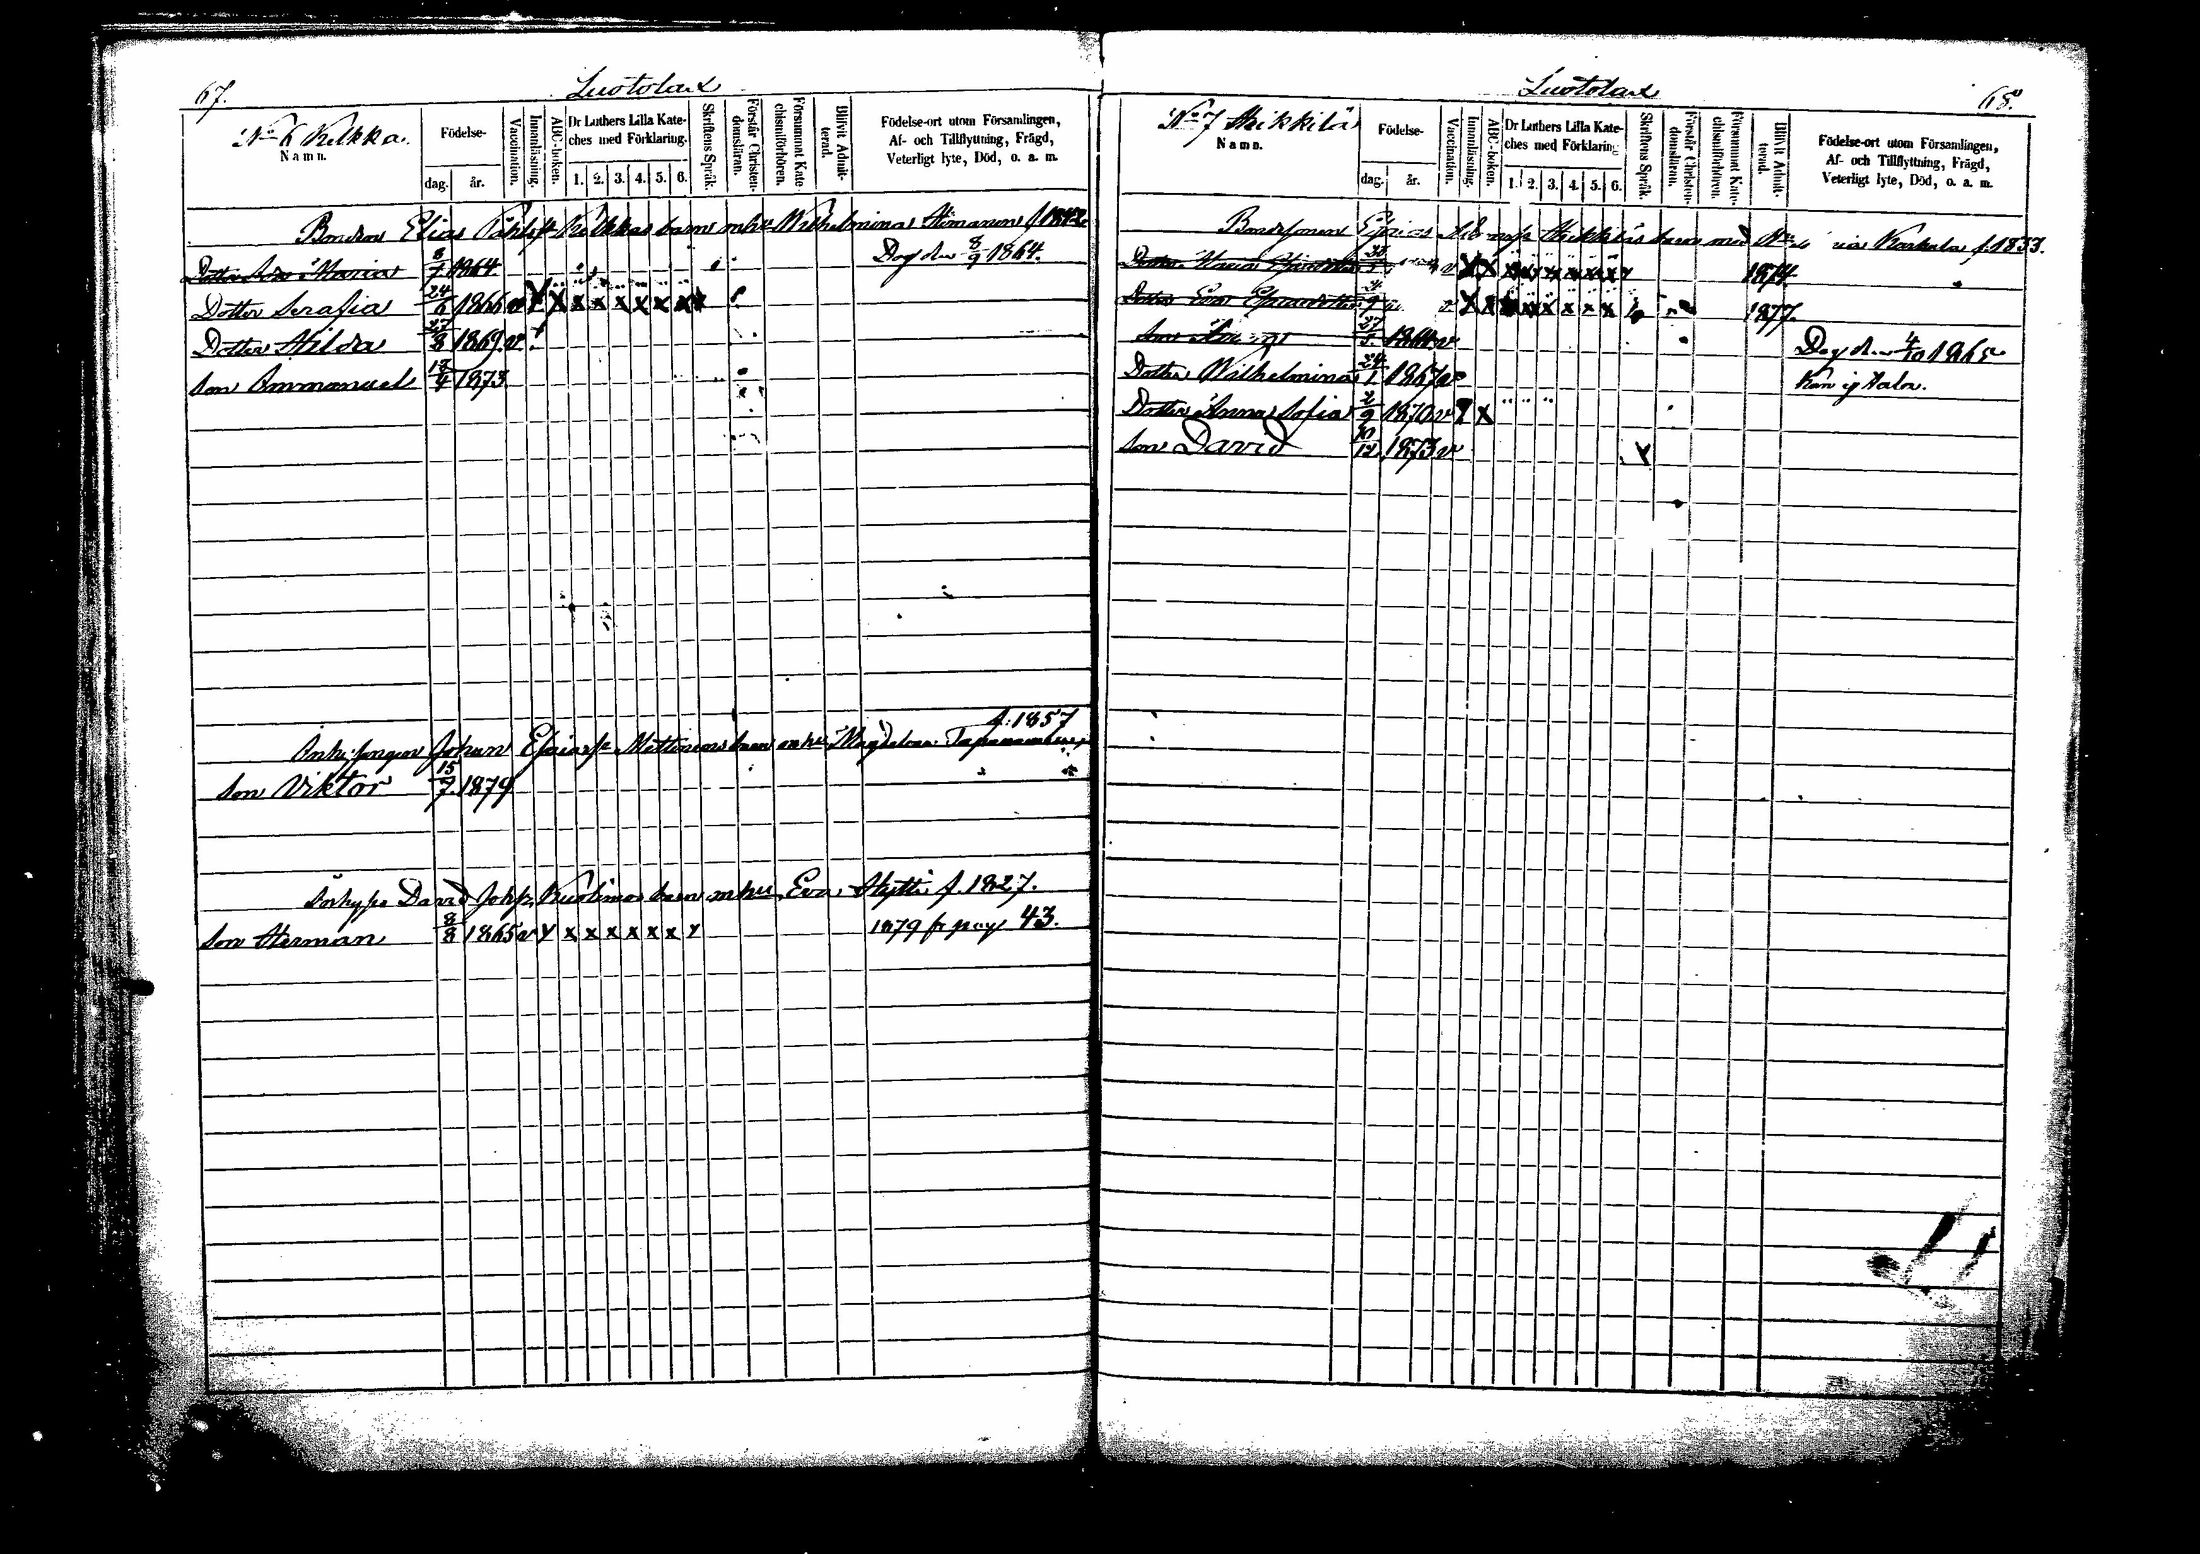 67.
Luotolax
No 6 Kelkka.
Namn.
Födelse-
dag. år.
Vaccination.
Innanläsning.
ABC-boken.
Dr Luthers Lilla Kate-
ches med Förklaring.
1. 2. 3. 4. 5. 6.
Skriftens Språk.
Förstår Christen-
domsläran.
Försummat Kate-
chismiförhören.
Blifvit Admit-
terad.
Födelse-ort utom Församlingen,
Af- och Tillflyttning, Frägd,
Veterligt lyte, Död, o. a. m.
Bonden Elias Kelkkas barn mhu Wilhelmina Himanen f. 1842
Dotter Maria 8/7 1864. Dog den 8/9 1864.
Dotter Serafia 24/6 1866 v x x x x x x x x x
Dotter Hilda 27/8 1869 v.
Son Immanuel 18/4 1873
f. 1857
Johan Esaiass. Mattinens barn mhu Magdalena
Son Viktor 15/7 1879
David Johs. Kuolimas barn mhu Eva Hytti f. 1827.
Son Herman 8/8 1865 v y x x x x x x y 1879 fr pag 43.
Luotolax
68.
No 7 Heikkilä
Namn.
Födelse-
dag. år.
Vaccination.
Innanläsning.
ABC-boken.
Dr Luthers Lilla Kate-
ches med Förklaring
1. 2. 3. 4. 5. 6.
Skriftens Språk.
Förstår Christen-
domsläran.
Försummat Kate-
chismiförhören.
Blifvit Admit-
terad.
Födelse-ort utom Församlingen,
Af- och Tillflyttning, Frägd,
Veterligt lyte, Död, o. a. m.
Bondesonen Esaias Heikkiläs barn med Karhala f. 1833.
Dotter Maria Esaiasdotter v x x x x x x x x 1874
Dotter Eva Esaiasdotter v x x x x x x x x 1877.
Son 27/5 1864 v Dog den 4/10 1865
Dotter Wilhelmina 24/1 1867 v Kan ej tala.
Dotter Anna Sofia 2/9 1870 v x x
Son David 10/12 1873 v